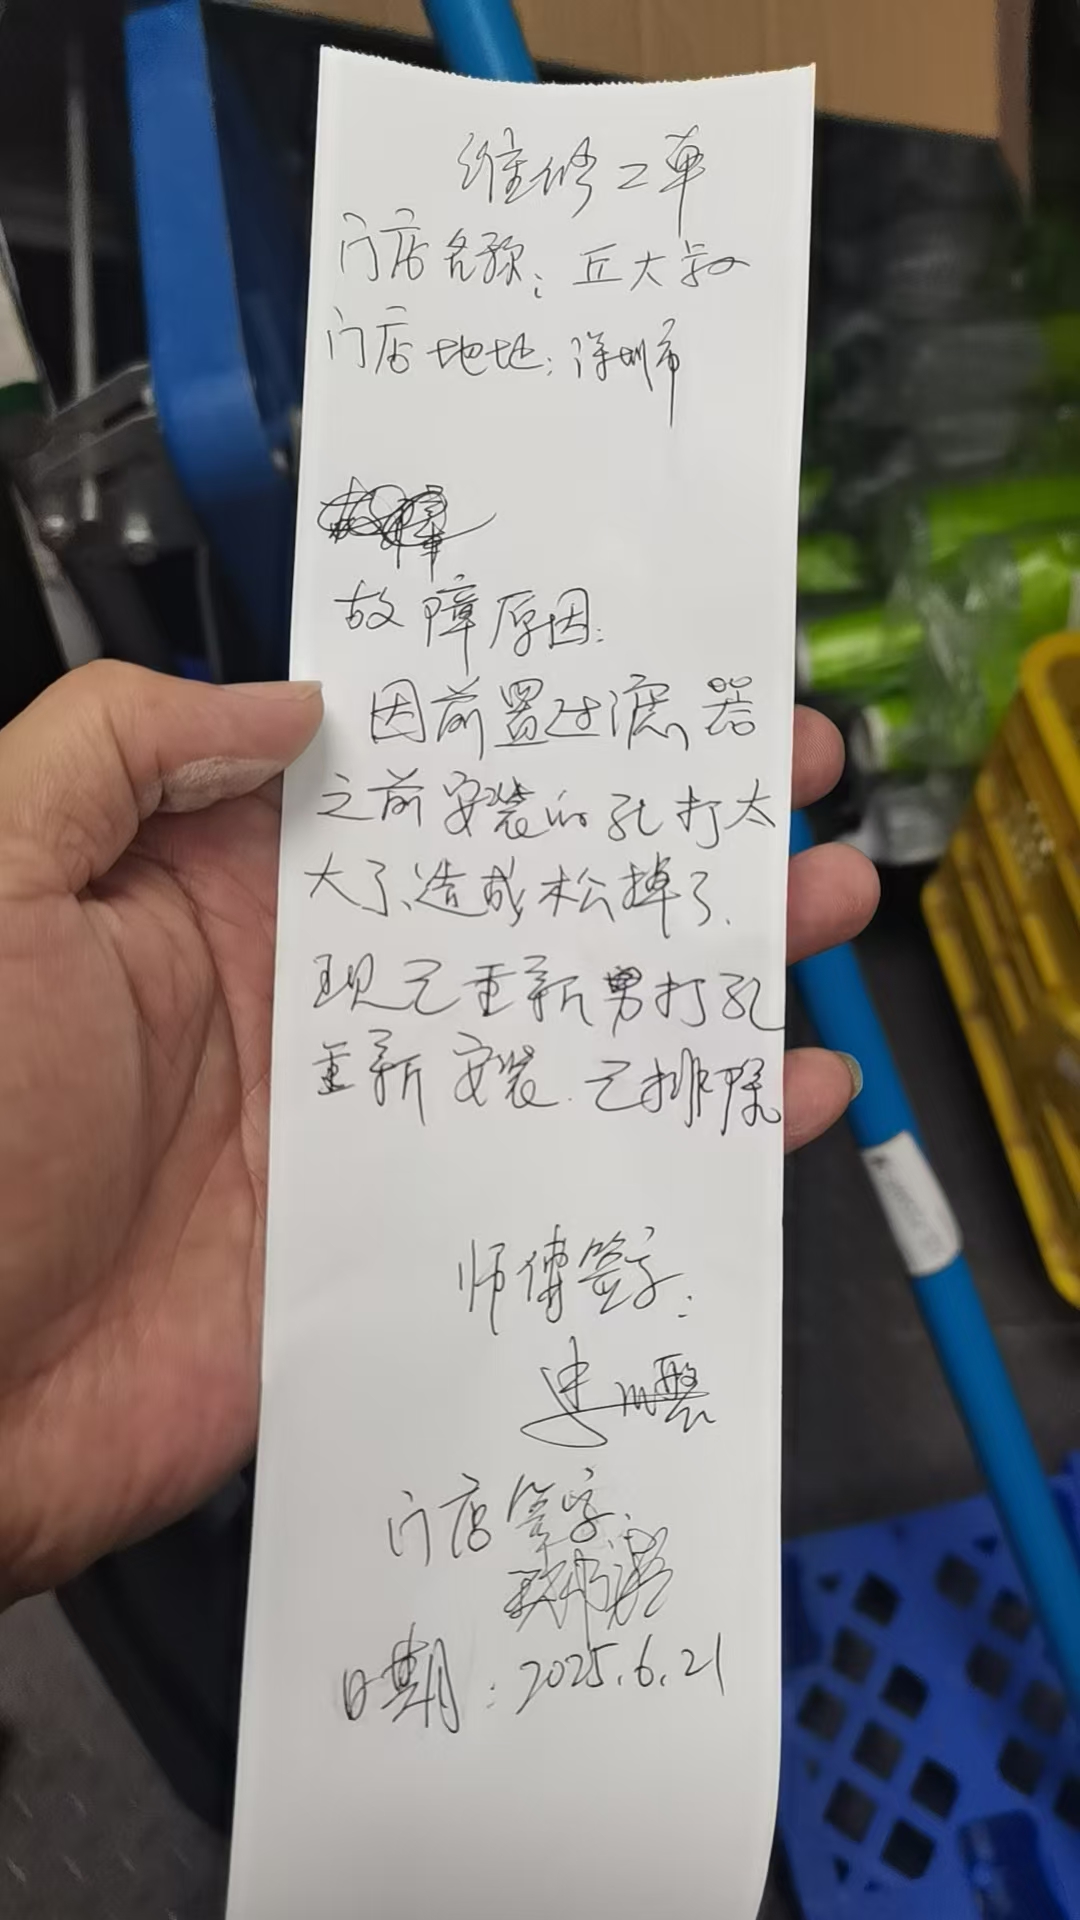 维修工单
门店名称：丘大叔
门店地址：深圳市
故障原因：
因前置过滤器
之前安装的孔打太
大了、造成松掉了.
现已重新另打孔
重新安装.已排除
师傅签字：
门店签字：
日期：2025.6.21